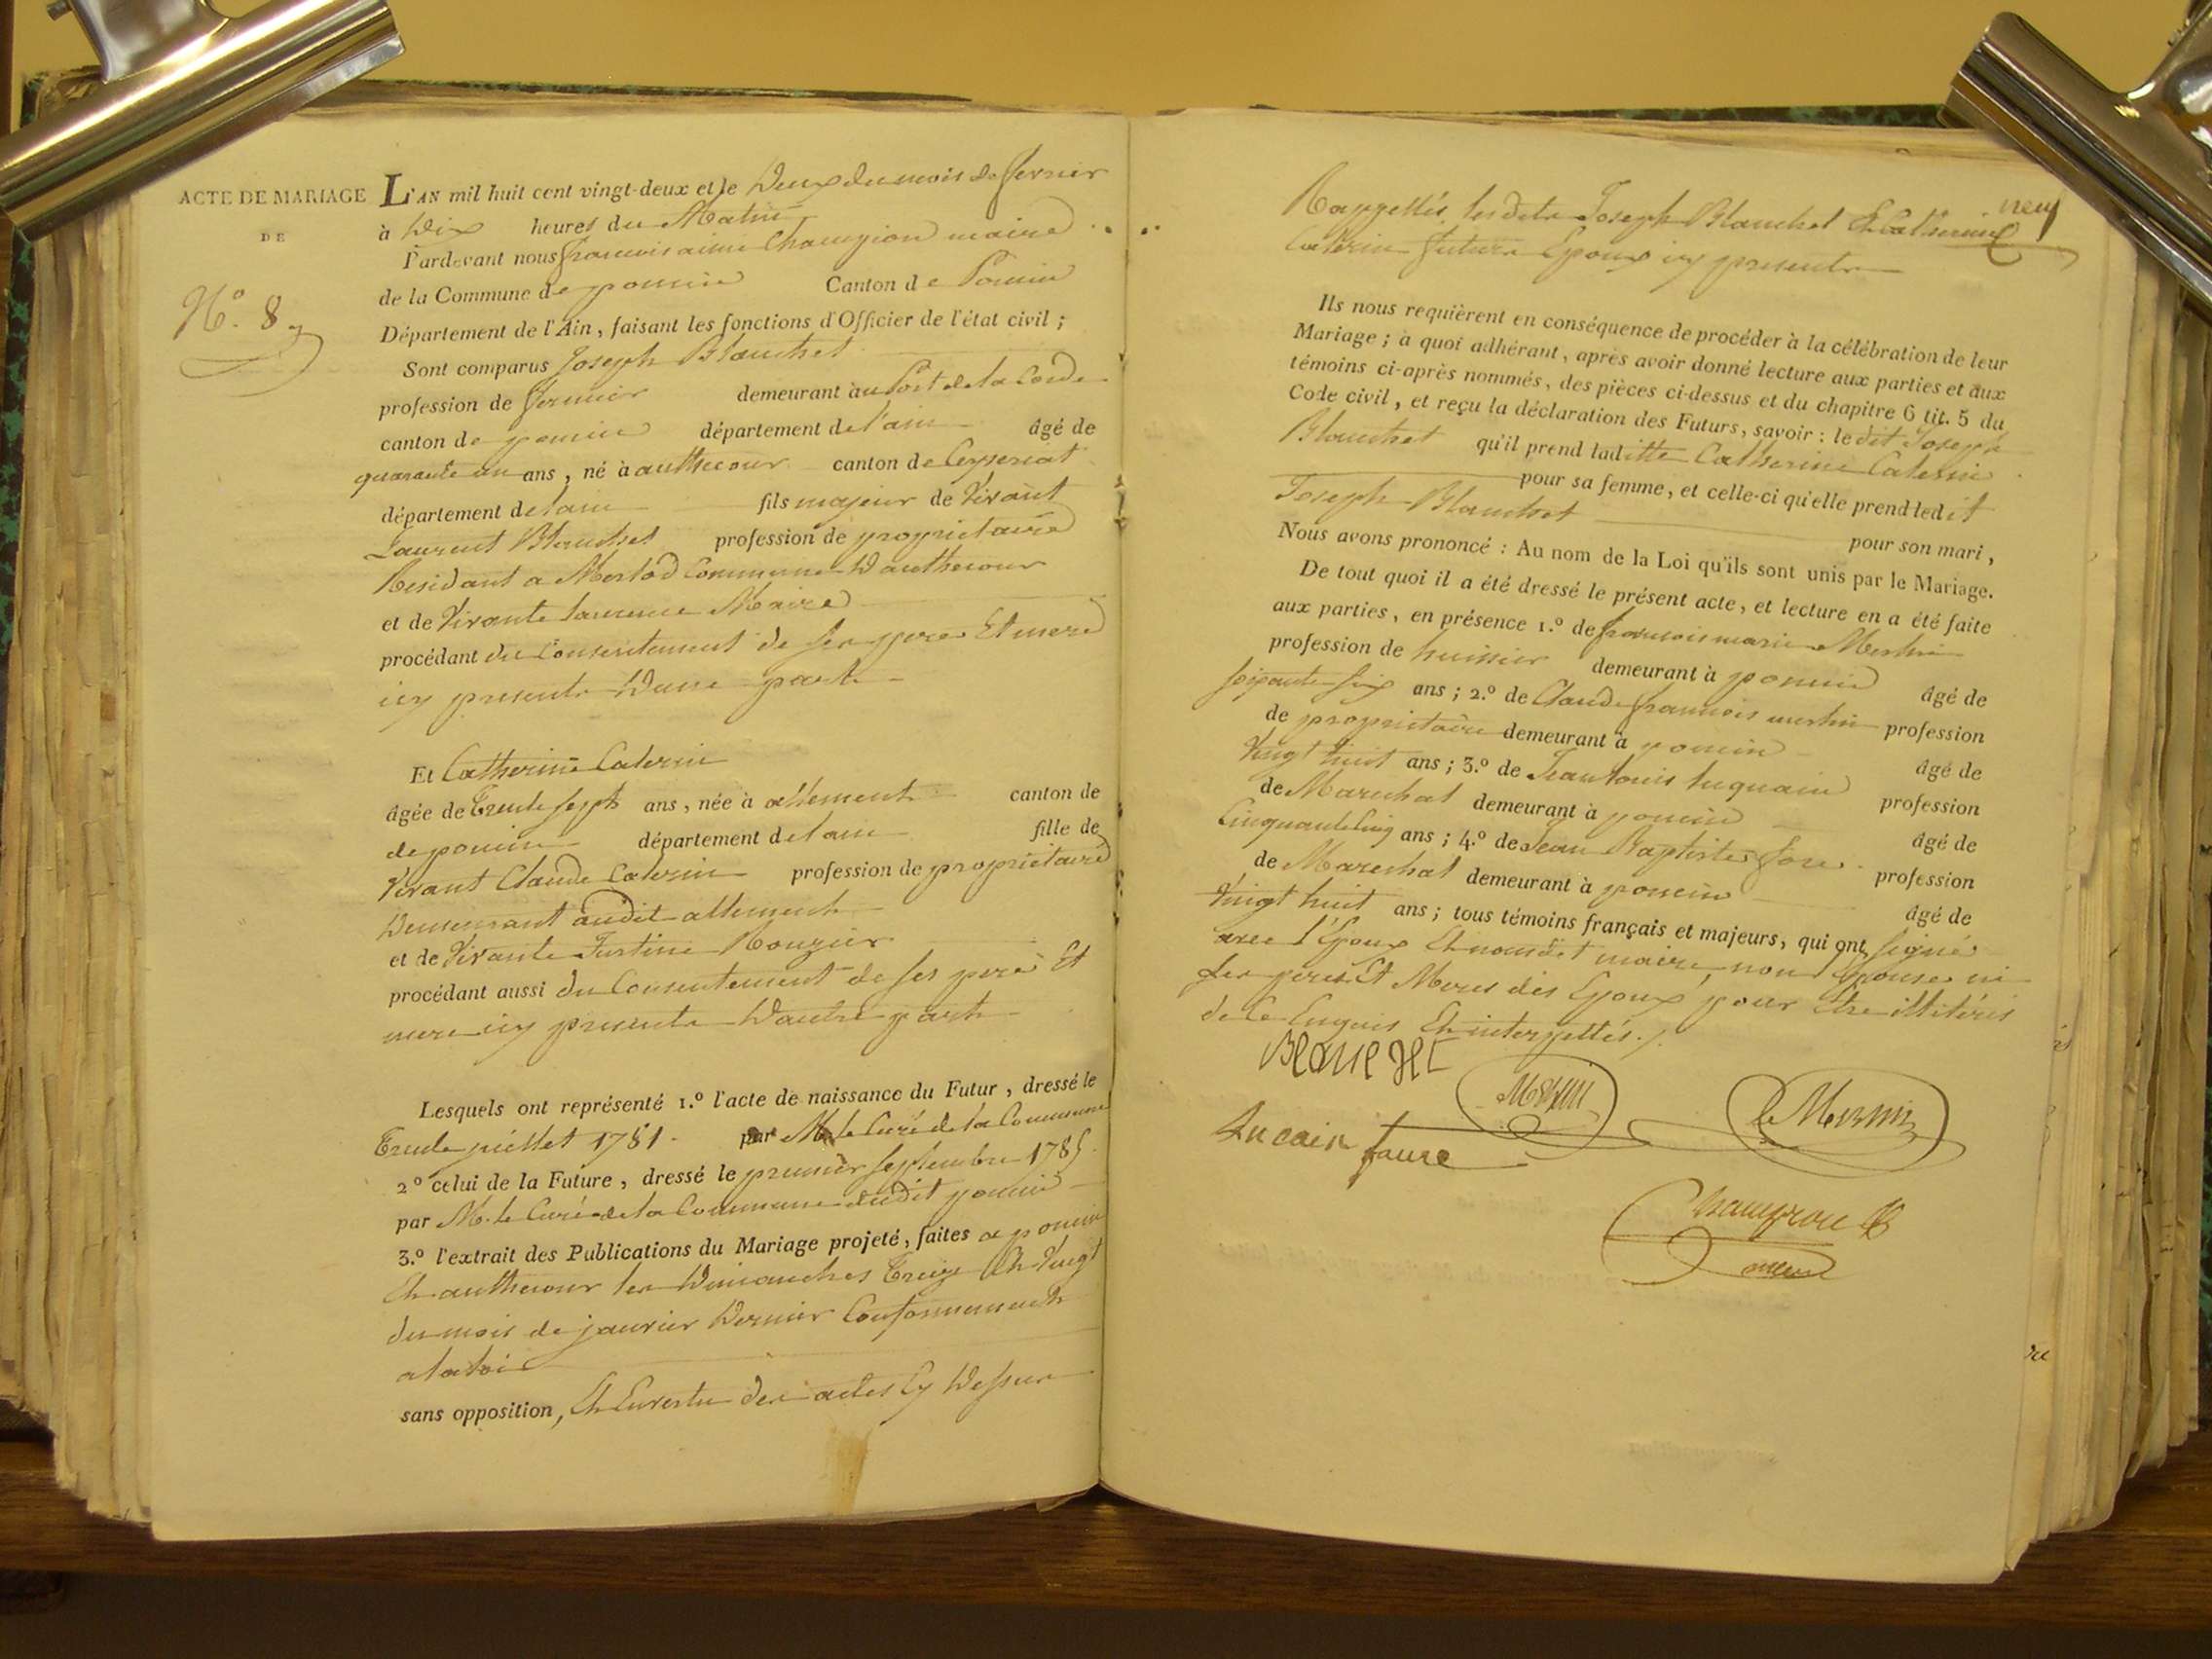 ACTE DE MARIAGE
DE
N.º 8
L'AN mil huit cent vingt-deux et le Deux du mois de fevrier
à Dix heures du Matin
Pardevant nous francois aimé Champion maire
de la Commune de poncin Canton de Poncin
Département de l'Ain, faisant les fonctions d'Officier de l'état civil ;
Sont comparus Joseph Blanchet
profession de fermier demeurant au Port de la Corde
canton de poncin département de l'ain âgé de
quarante un ans, né à authecour canton de Ceyseriat
département de lain fils majeur de Vivant
Laurent Blanchet profession de proprietaire
Residant a Merlod Commune D authecour
et de Vivante laurence Maire
procédant du Consentement de ses pere Et mere
icy presents Dune part
Et Catherine Caterin
âgée de Trente sept ans, née à allement canton de
de poncin département de lain fille de
Vivant Claude Caterin profession de proprietaire
Demeurant audit allement
et de Vivante Justine Rougier
procédant aussi du Consentement de ses pere Et
mere icy presents Dautre part
Lesquels ont représenté 1.º l'acte de naissance du Futur, dressé le
Trente juillet 1781. par M. le Curé de la Commune
2º celui de la Future, dressé le premier septembre 1785.
par M. le Curé de la Commune dudit poncin
3.º l'extrait des Publications du Mariage projeté, faites a poncin
Et authecour les Dimanches Treize Et Vingt
du mois de janvier Dernier Conformement
a la loi
sans opposition, Et Envertu des actes Cy Dessus
neuf
Rappellés, lesdits Joseph Blanchet Et Catherine
Caterin futurs Epoux icy presents
Ils nous requièrent en conséquence de procéder à la célébration de leur
Mariage ; à quoi adhérant, après avoir donné lecture aux parties et aux
témoins ci-après nommés, des pièces ci-dessus et du chapitre 6 tit. 5 du
Code civil, et reçu la déclaration des Futurs, savoir : le dit Joseph
Blanchet qu'il prend laditte Catherine Caterin
pour sa femme, et celle-ci qu'elle prend ledit
Joseph Blanchet pour son mari,
Nous avons prononcé : Au nom de la Loi qu'ils sont unis par le Mariage.
De tout quoi il a été dressé le présent acte, et lecture en a été faite
aux parties, en présence 1.º de francois marie Merlin
profession de huissier demeurant à poncin âgé de
soixante six ans ; 2.º de Claude francois merlin profession
de proprietaire demeurant à poncin âgé de
Vingt huit ans ; 3.º de Jean louis luquain profession
de Marechal demeurant à poncin âgé de
Cinquante Cinq ans ; 4.º de Jean Baptiste fore profession
de Marechal demeurant à poncin âgé de
Vingt huit ans ; tous témoins français et majeurs, qui ont signé
avec l'Epoux Et nousdit maire non l'Epouse ni
les peres Et Meres des Epoux pour Etre illitérés
de Ce Enquis Et interpellés.
Blanchet
Merlin
Merlin
Lucain faure
Champion
maire